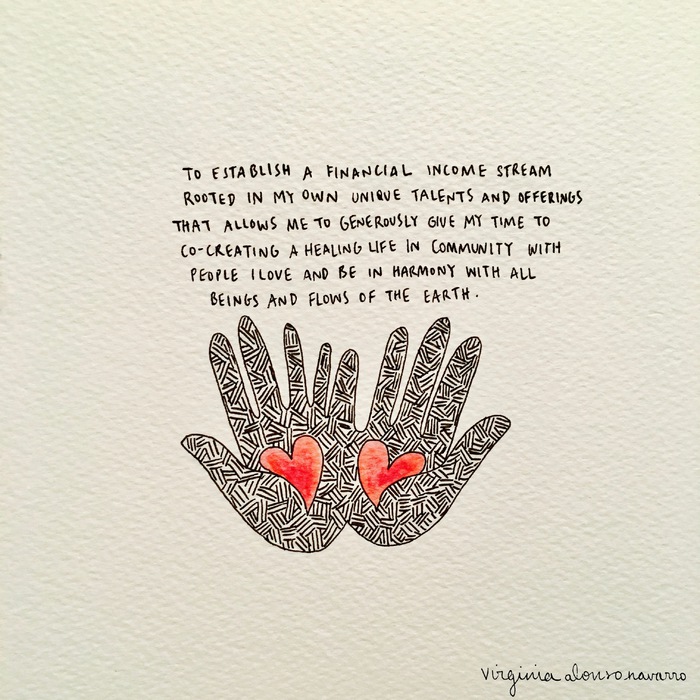 TO ESTABLISH A FINANCIAL INCOME STREAM
ROOTED IN MY OWN UNIQUE TALENTS AND OFFERINGS
THAT ALLOWS ME TO GENEROUSLY GIVE MY TIME TO
CO-CREATING A HEALING LIFE IN COMMUNITY WITH
PEOPLE I LOVE AND BE IN HARMONY WITH ALL
BEINGS AND FLOWS OF THE EARTH.
virginia alonso navarro